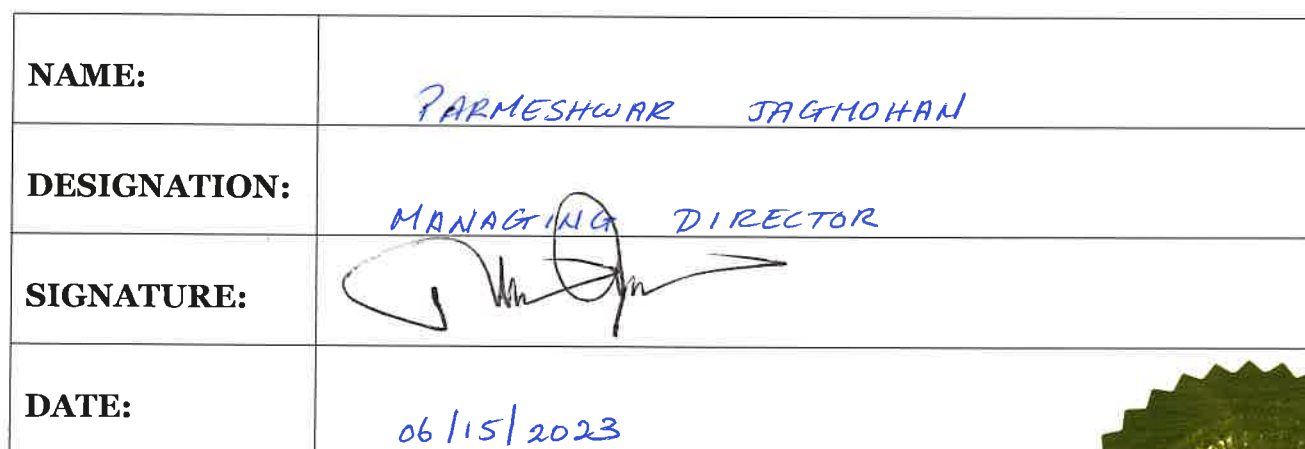 NAME: PARMESHWAR JAGMOHAN
DESIGNATION: MANAGING DIRECTOR
SIGNATURE:
DATE: 06/15/2023